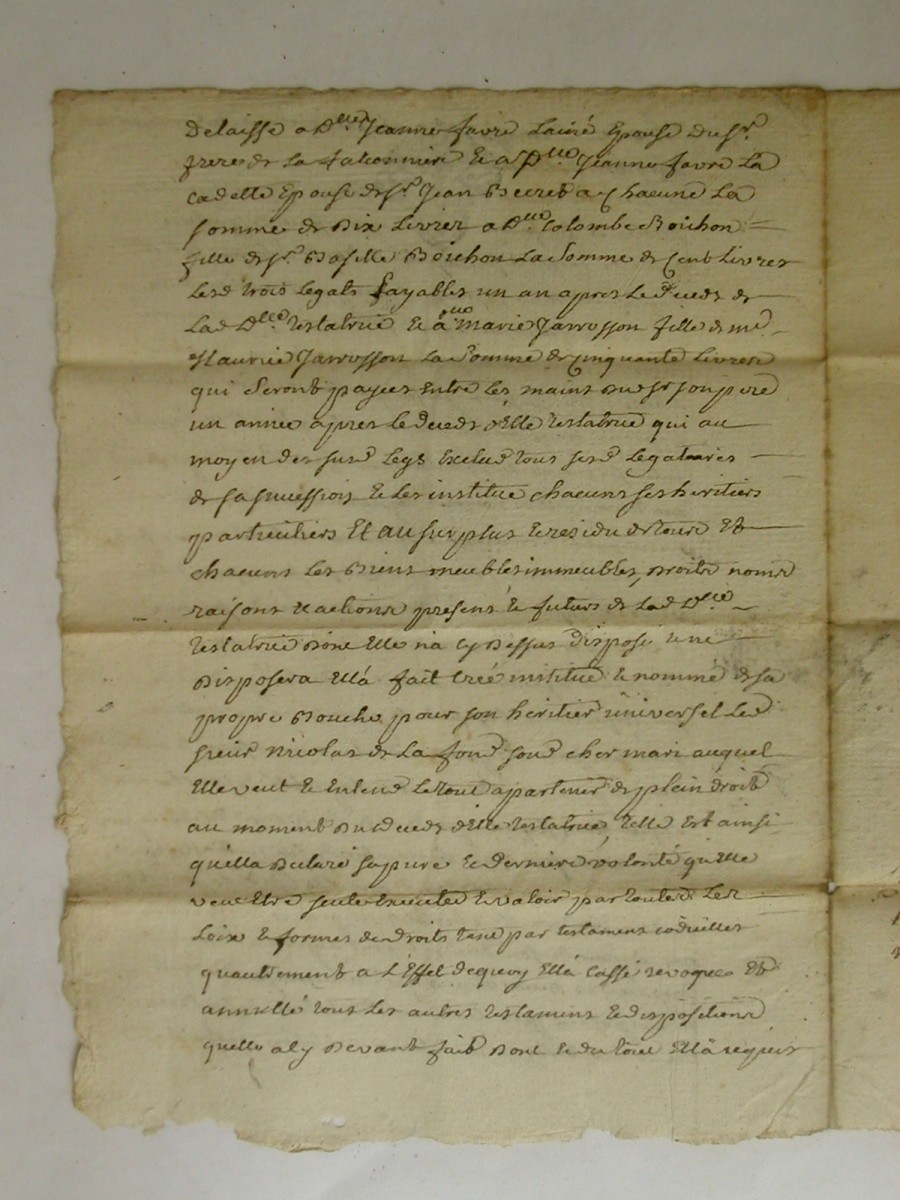 delaisse a D.lle Jeanne favre lainé Epouse du Sr.
freres de la falconniere & a D.lle Jeanne favre la
cadette Epouse de Sr. Jean a Chacune la
somme de Dix Livres a D.lle Colombe Boichon
fille de Sr. Basille Boichon la Somme de Cent Livres
Lesd trois Legats payables un an apres le deceds de
Lad D.lle testatrice & a D.lle Marie Jarrosson fille de me
Maurice Jarrosson la Somme de Cinquante Livres
qui Seront payees Entre les mains dud Sr son pere
un année apres le deceds d'Elle testatrice qui au
moyen des susd Legs Exclud tous sesd Legataires
de sa succession & les institue chacuns ses heritiers
particuliers Et au surplus & residu de tous Et
chacuns Les Biens meubles immeubles, droits noms
raisons & actions presens & futurs de Lad D.lle
testatrice dont Elle n'a cy Dessus disposé & ne
Disposera Ell'a fait Créé institué & nommé de sa
propre Bouche pour son heritier universel Led
sieur Nicolas de La fond sond cher mari auquel
Elle veut & Entend Le tout apartenir de plein droit
au moment du deceds d'Elle testatrice, telle Est ainsi
qu'ella declaré sa pure & derniere volonté qu'Elle
veut Etre seule Executée & valoir par toutes Les
Loix & formes de droits tant par testament codicilles
qu'autrement a L'Effet dequoy Ell'a Cassé revoqué Et
annullé tous Les autres testamens & dispositions
quelle a cy Devant fait Dont & du tout Ell'a requis